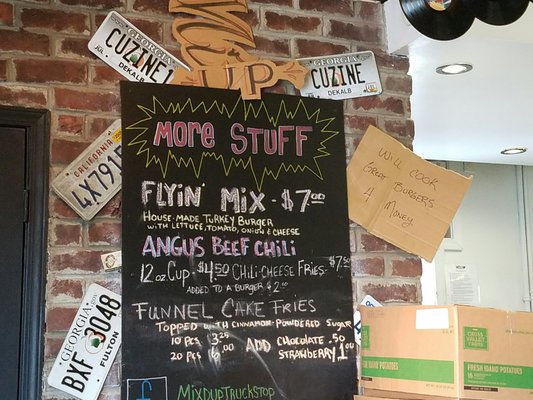 GEORGIA
CUZINE
DEKALB
UP
GEORGIA
CUZINE
DEKALB
MORE STUFF
CALIFORNIA
4X791
FLYIN' MIX - $7.00
HOUSE-MADE TURKEY BURGER
WITH LETTUCE, TOMATO, ONION & CHEESE
WILL COOK
GREAT BURGERS
4
MONEY
ANGUS BEEF CHILI
12oz. CUP - $4.50 CHILI-CHEESE FRIES - $7.50
ADDED TO A BURGER $2.00
GEORGIA
BXF 3048
FULTON
FUNNEL CAKE FRIES
TOPPED WITH CINNAMON-POWDERED SUGAR
10 PCS $3.25 ADD CHOCOLATE .50
20 PCS 6.00 STRAWBERRY 1.00
MIXDUPTRUCKSTOP
FRESH IDAHO POTATOES
FRESH IDAHO POTATOES